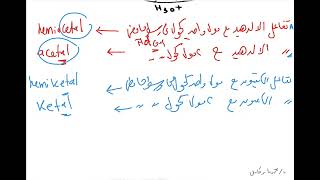 H3O+
hemiacetal ← تفاعل الالدهيد مع مول واحد كحول في وسط حامضي
acetal ← " الالدهيد مع 2 مول كحول " "
HCl
hemiketal ← تفاعل الكيتون مع مول واحد كحول في وسط حامضي
Ketal ← " الكيتون مع 2 مول كحول " "